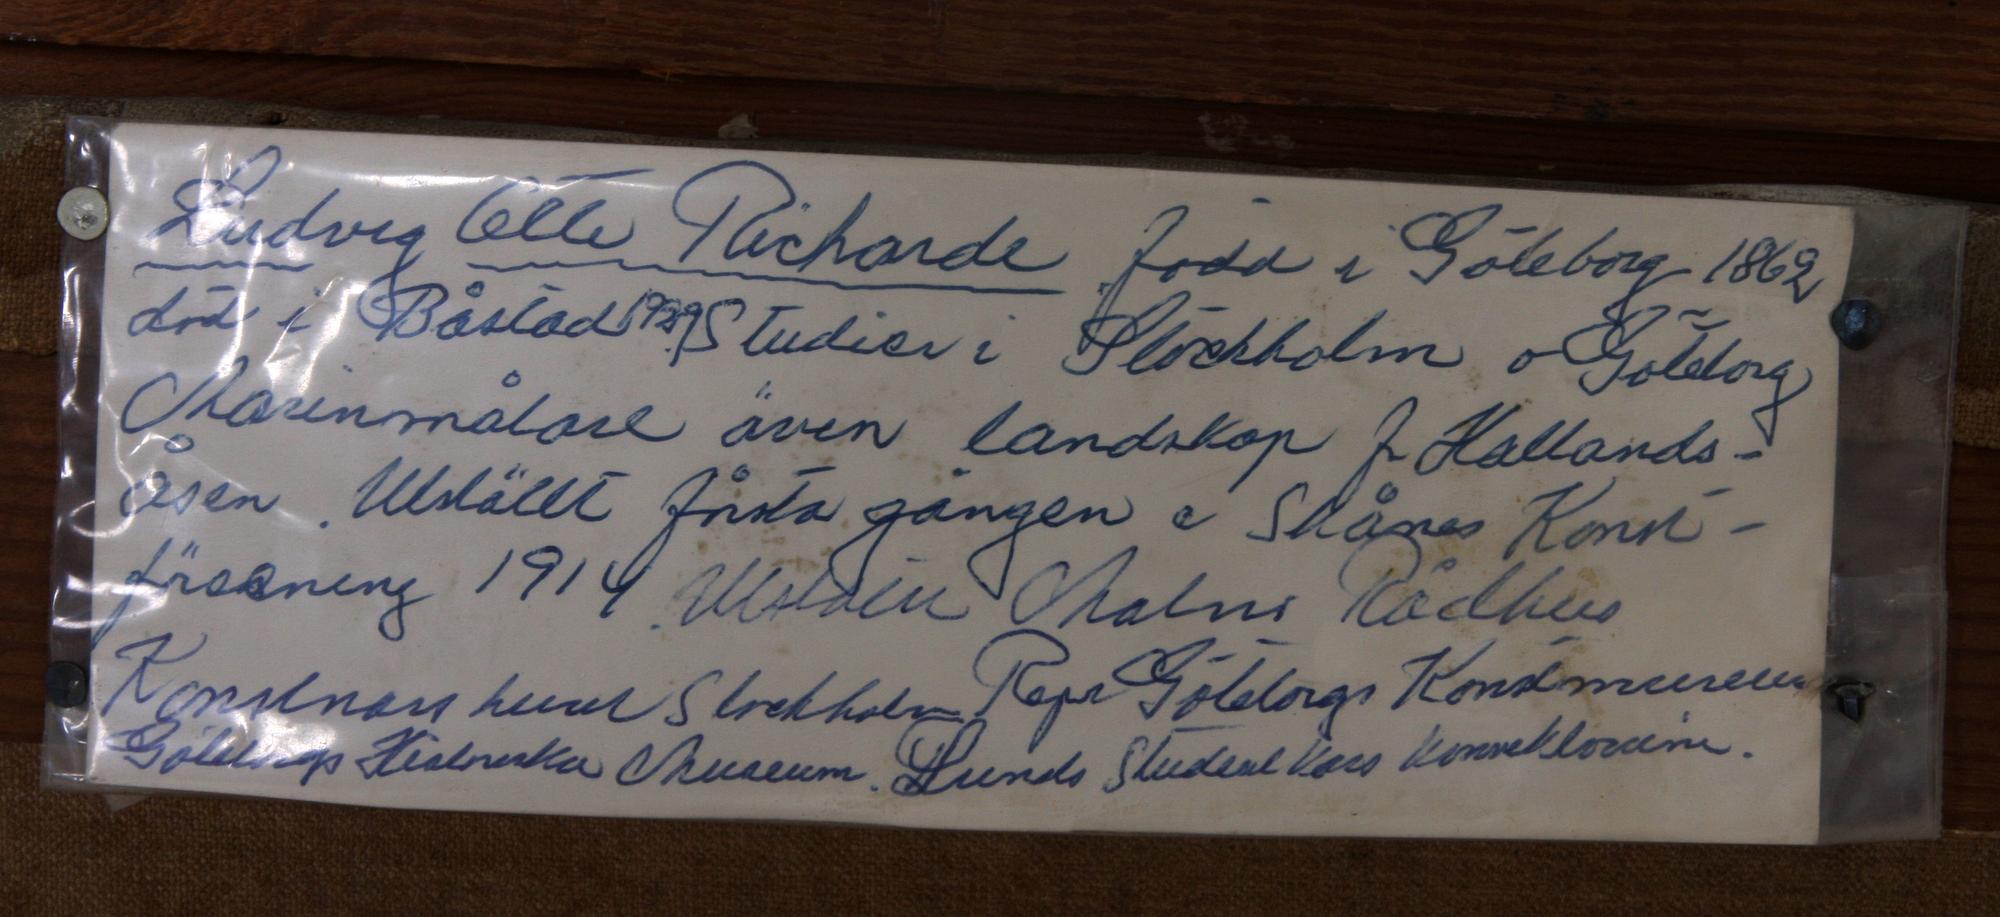 Ludvig Otto Richarde född i Göteborg 1862
död i Båstad 1929 Studier i Stockholm o Göteborg
Marinmålare även landskap fr Hallands-
åsen. Utställt första gången i Skånes Konst-
förening 1914. Utställn Malmö Rådhus
Konstnärshuset Stockholm Repr Göteborgs Konstmuseum
Göteborgs Historiska Museum. Lunds Studentkårs